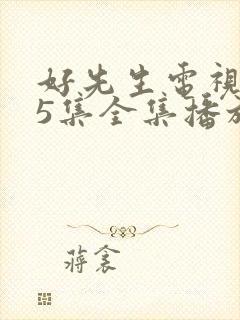 好先生電視
5集全集播放
蔣衾